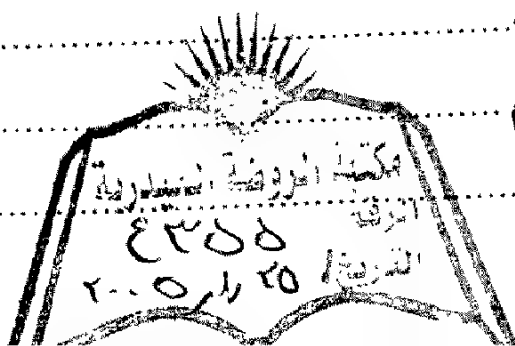 مكتبة الروضة الحيدرية
الرقم
٤٣٥٥
التاريخ / ٢٥ ٢٠٠٥